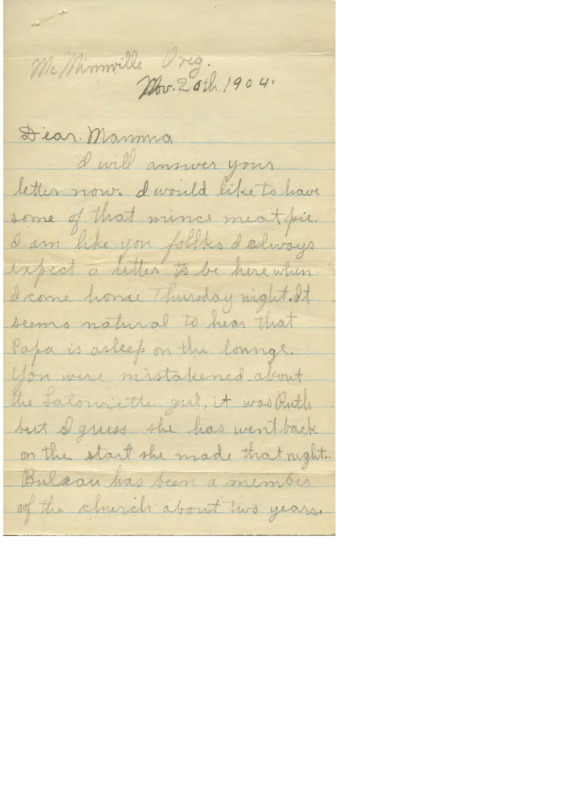 Mc Minnville Oreg.
Nov. 20th 1904.
Dear Mamma
I will answer your
letter now. I would like to have
some of that mince meat pie.
I am like you follks I always
expect a letter to be here when
I come home Thursday night. It
seems natural to hear that
Papa is asleep on the lounge.
You were mistakened about
the Latourette girl, it was Ruth
but I guess she has went back
on the start she made that night.
Buleau has been a member
of the church about two years.